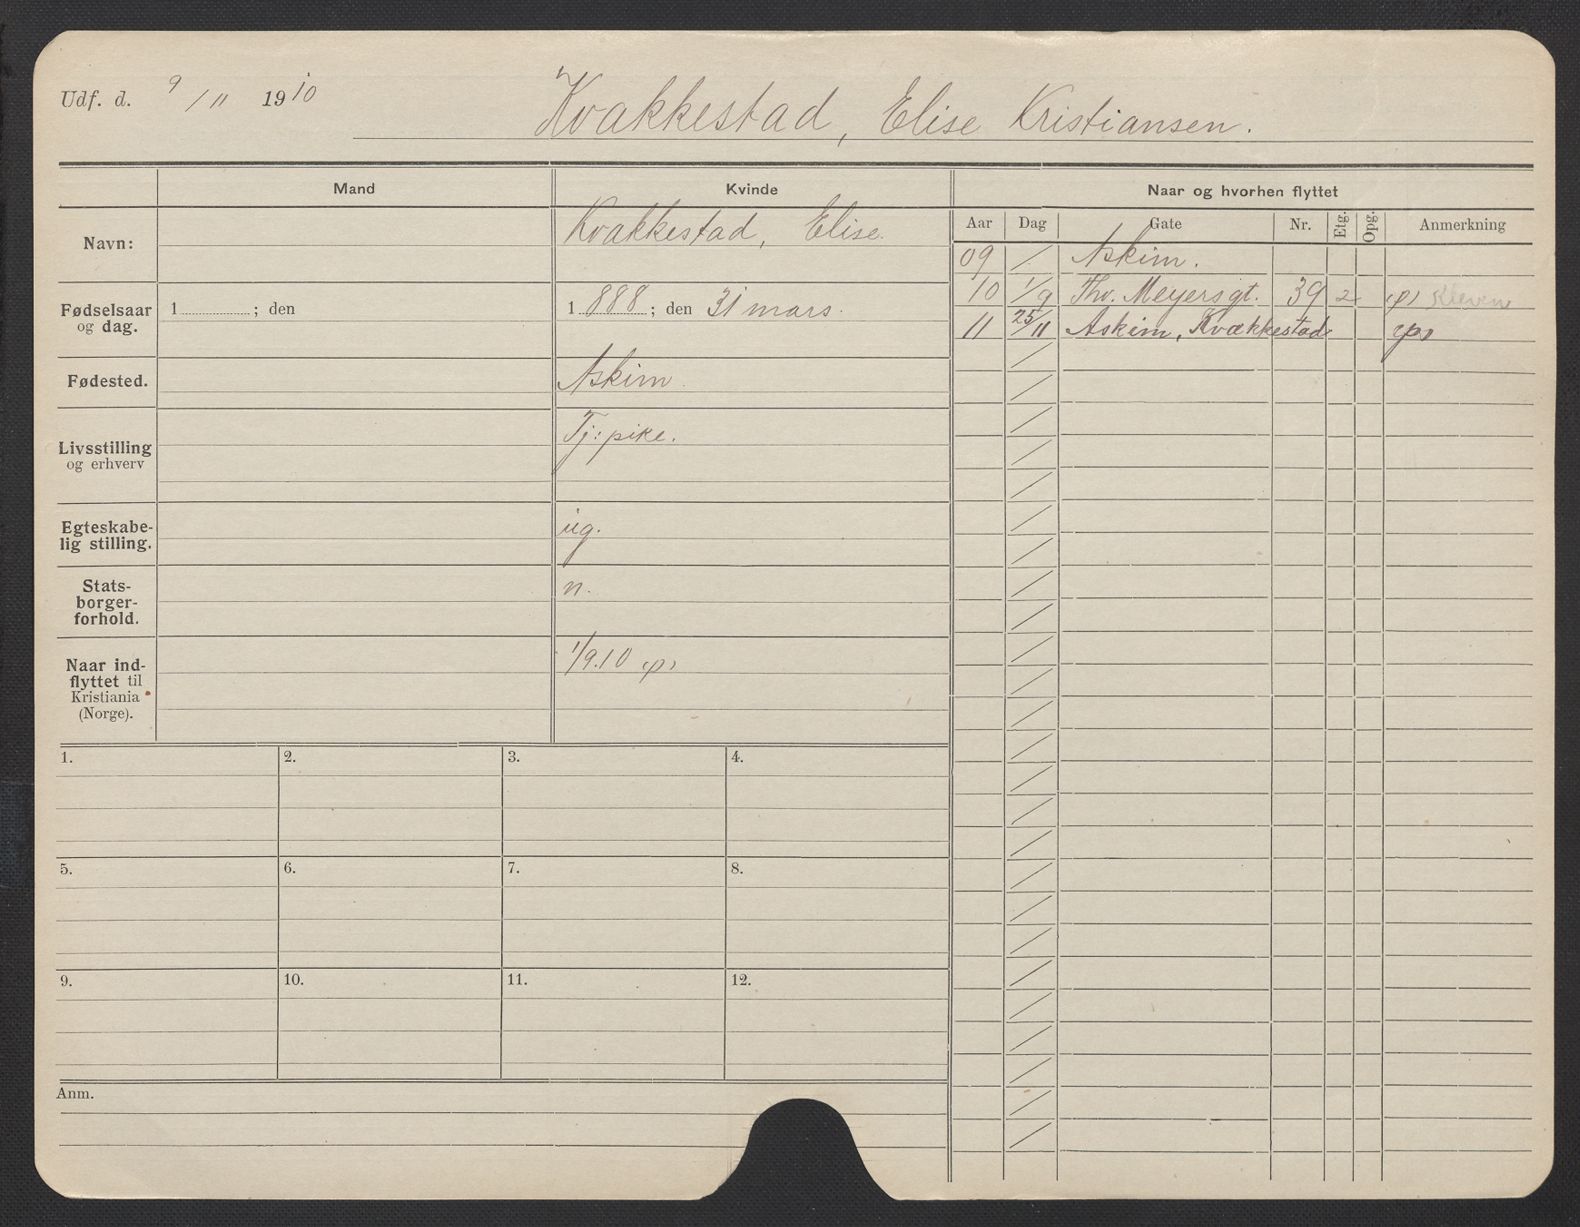 Udf. d. 9/11 1910
Kvakkestad, Elise Kristiansen.
Mand
Kvinde
Navn:
Kvakkestad, Elise.
Fødselsaar og dag.
1 ; den
1 888 ; den 31 mars.
Fødested.
Askim.
Livsstilling og erhverv
Tj: pike.
Egteskabe-
lig stilling.
ug.
Stats-
borger-
forhold.
n.
Naar ind-
flyttet til
Kristiania
(Norge).
1/9.10
1. 2. 3. 4.
5. 6. 7. 8.
9. 10. 11. 12.
Anm.
Naar og hvorhen flyttet
Aar Dag Gate Nr. Etg. Opg. Anmerkning
09 / Askim.
10 1/9 Thv. Meyersgt. 39 2
11 25/11 Askim, Kvækkestad